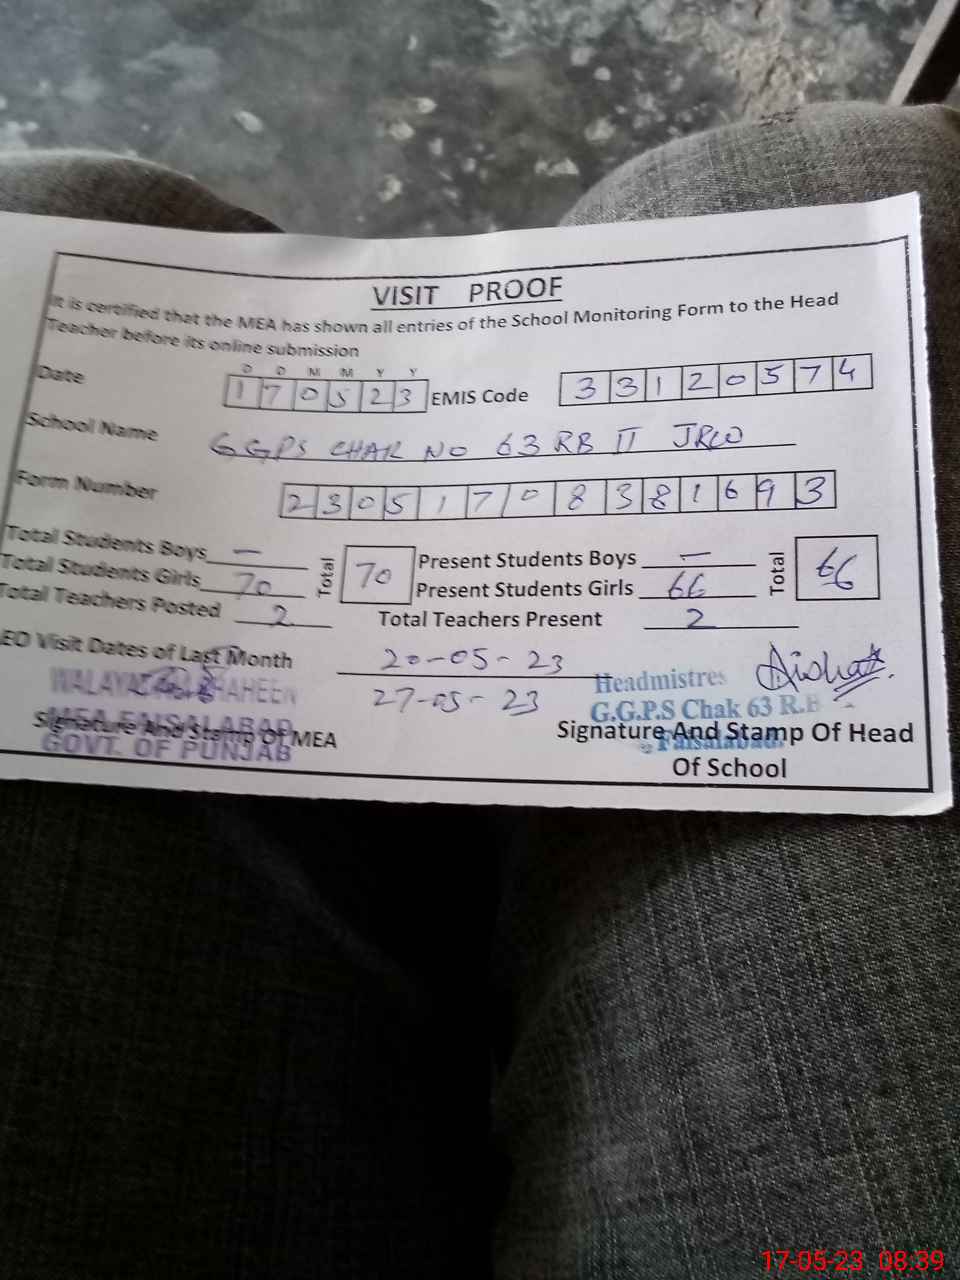 VISIT PROOF
It is certified that the MEA has shown all entries of the School Monitoring Form to the Head
Teacher before its online submission
D D M M Y Y
Date 170523 EMIS Code 33120574
School Name GGPS CHAK NO 63 RB II JRW
Form Number 23051708381693
Total Students Boys — Total 70 Present Students Boys — Total 66
Total Students Girls 70 Present Students Girls 66
Total Teachers Posted 2 Total Teachers Present 2
EO Visit Dates of Last Month 20-05-23
27-05-23
WALAYAT SHAHEEN
MEA FAISALABAD
GOVT. OF PUNJAB
Signature And Stamp Of MEA
Headmistres
G.G.P.S Chak 63 R.B
Faisalabad.
Aisha
Signature And Stamp Of Head
Of School
17-05-23 08:39